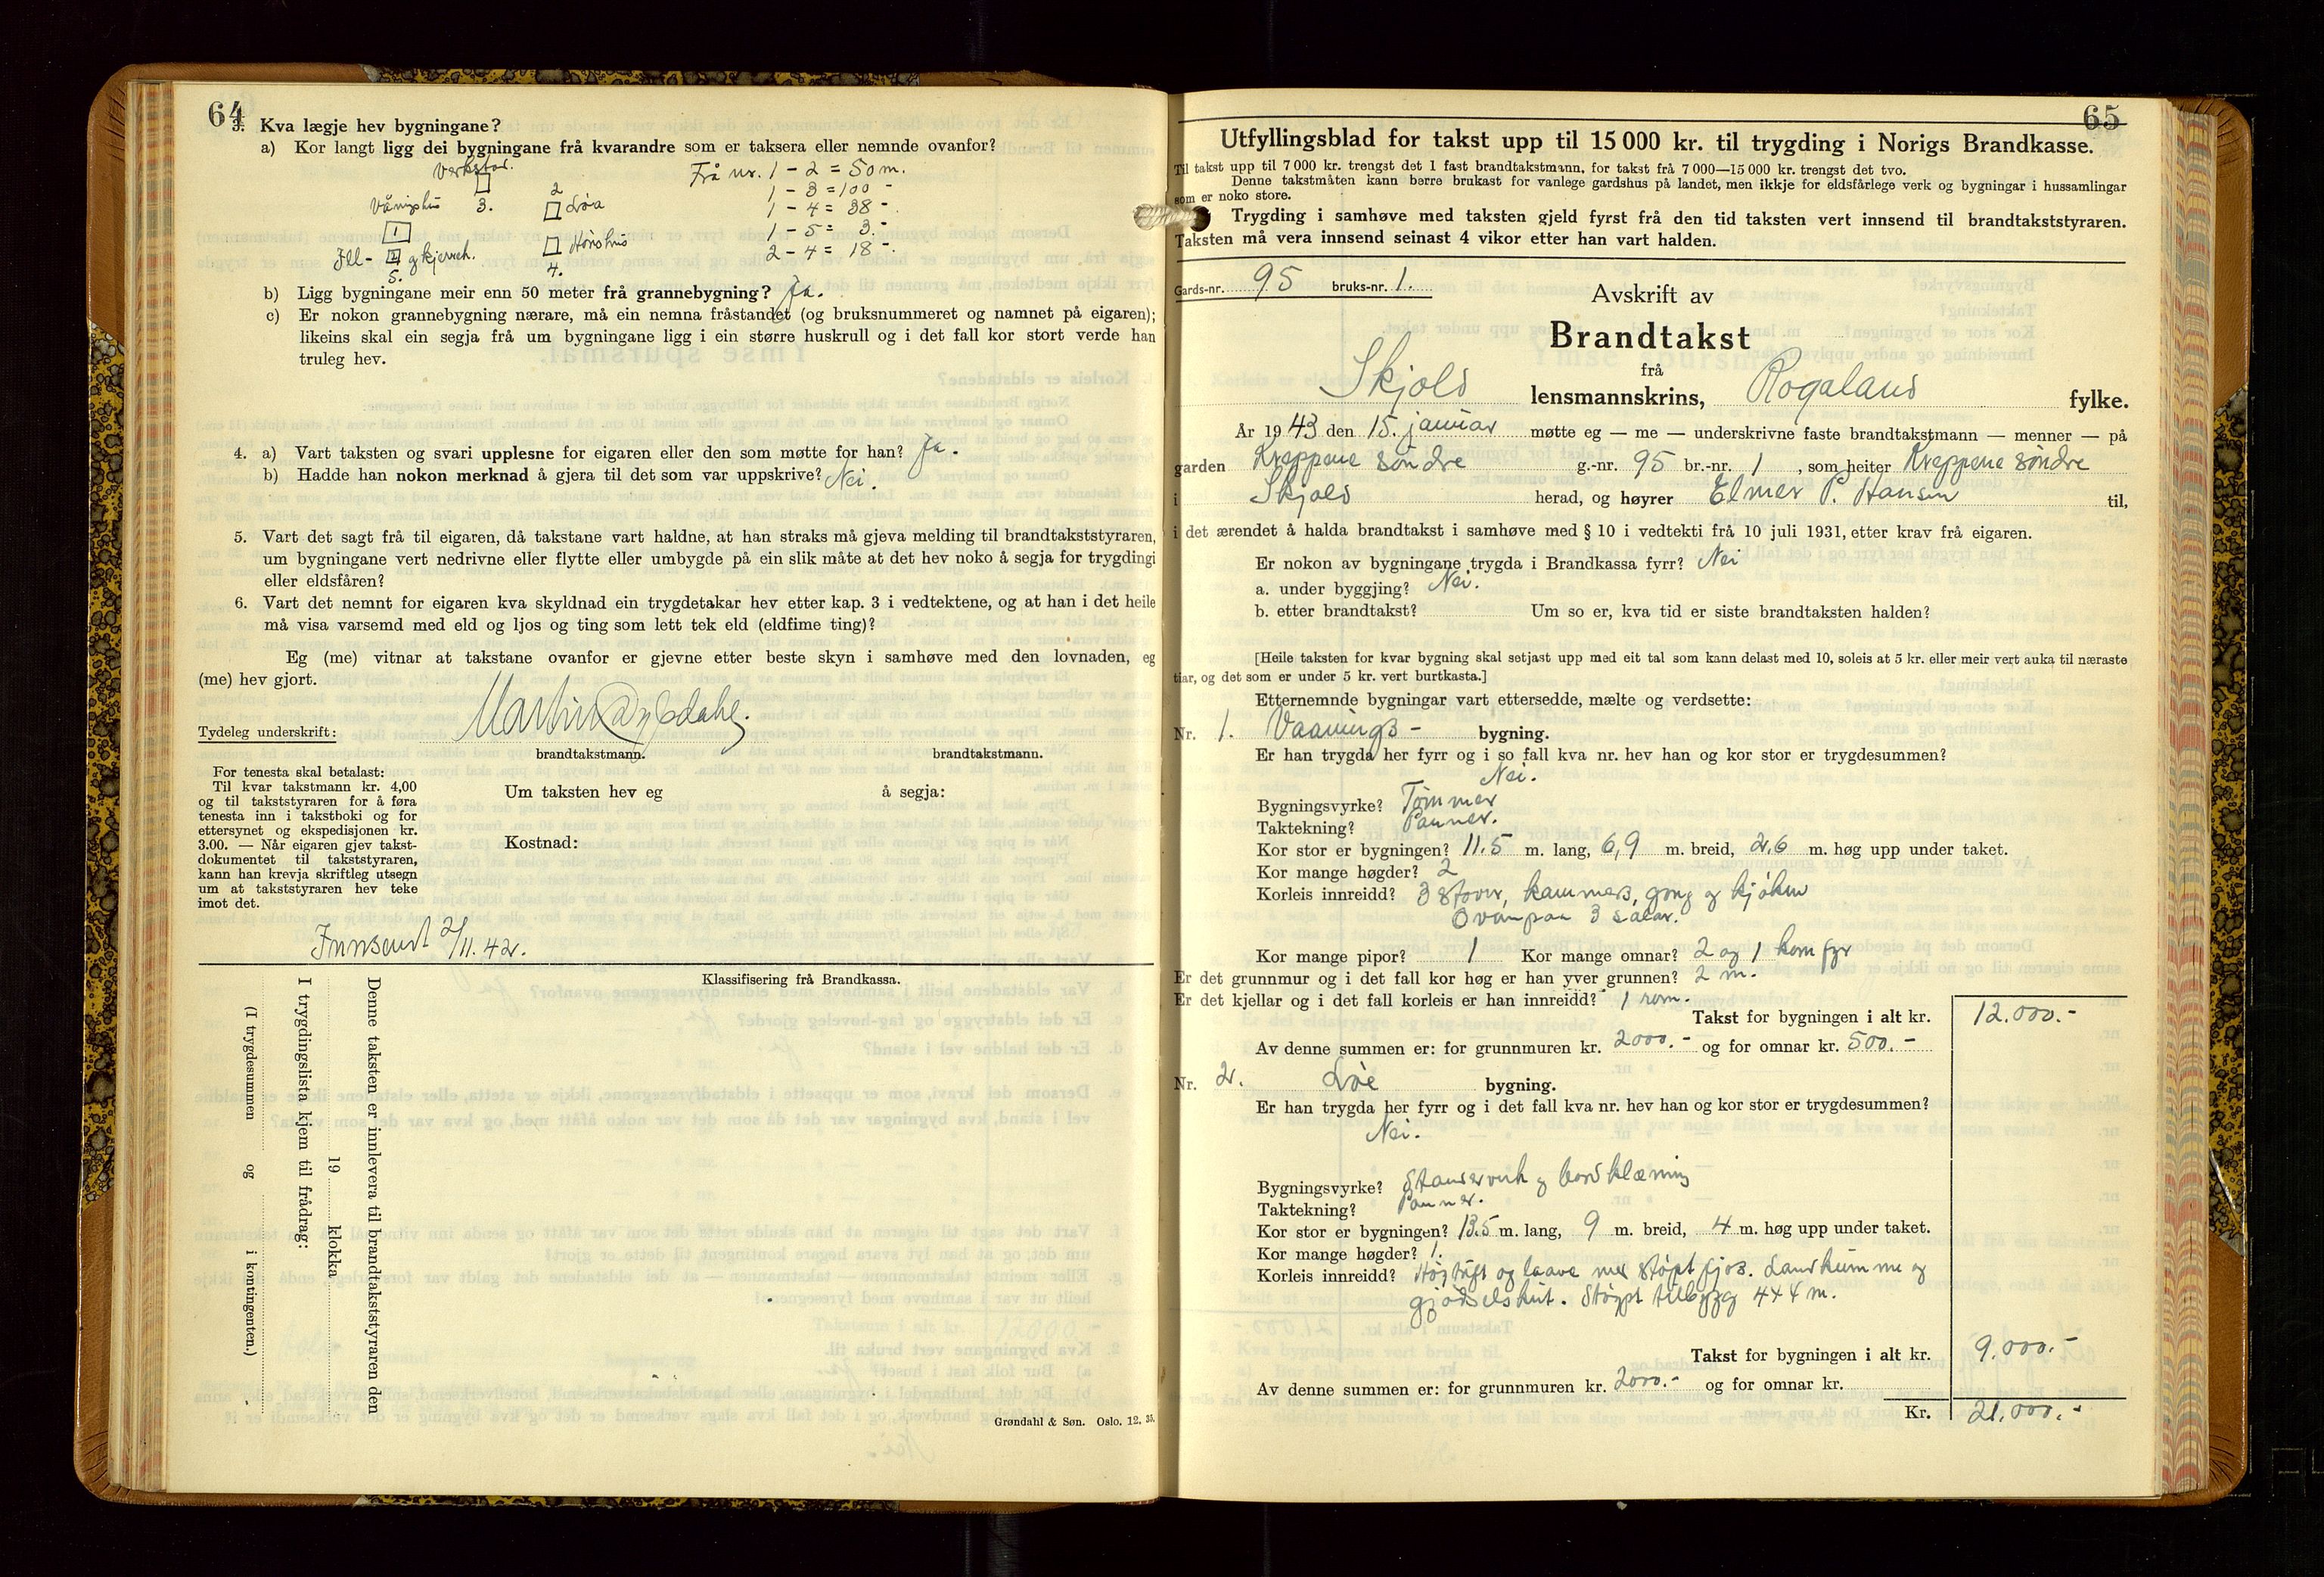 64
3. Kva lægje hev bygningane?
a) Kor langt ligg dei bygningane frå kvarandre som er taksera eller nemnde ovanfor?
Verkstar.
Våningshus 3.
2
Löa
1
Hönshus
4.
Ill- og kjerreh.
5.
Frå nr. 1 - 2 = 50 m.
1 - 3 = 100 -
1 - 4 = 38 -.
1 - 5 = 3.
2 - 4 = 18 -.
b) Ligg bygningane meir enn 50 meter frå grannebygning? Ja.
c) Er nokon grannebygning nærare, må ein nemna fråstandet (og bruksnummeret og namnet på eigaren);
likeins skal ein segja frå um bygningane ligg i ein større huskrull og i det fall kor stort verde han
truleg hev.
4. a) Vart taksten og svari upplesne for eigaren eller den som møtte for han? Ja.
b) Hadde han nokon merknad å gjera til det som var uppskrive? Nei.
5. Vart det sagt frå til eigaren, då takstane vart haldne, at han straks må gjeva melding til brandtakststyraren,
um bygningane vert nedrivne eller flytte eller umbygde på ein slik måte at det hev noko å segja for trygdingi
eller eldsfåren?
6. Vart det nemnt for eigaren kva skyldnad ein trygdetakar hev etter kap. 3 i vedtektene, og at han i det heile
må visa varsemd med eld og ljos og ting som lett tek eld (eldfime ting)?
Eg (me) vitnar at takstane ovanfor er gjevne etter beste skyn i samhøve med den lovnaden, eg
(me) hev gjort.
Tydeleg underskrift: Martin
brandtakstmann. brandtakstmann.
For tenesta skal betalast:
Til kvar takstmann kr. 4,00
og til takststyraren for å føra
tenesta inn i takstboki og for
ettersynet og ekspedisjonen kr.
3.00. — Når eigaren gjev takst-
dokumentet til takststyraren,
kann han krevja skriftleg utsegn
um at takststyraren hev teke
imot det.
Um taksten hev eg å segja:
Kostnad:
Innsendt 2/11.42.
Klassifisering frå Brandkassa.
Denne taksten er innlevera til brandtakststyraren den
19 klokka
I trygdingslista kjem til frådrag:
(I trygdesummen og i kontingenten.)
Grøndahl & Søn. Oslo. 12. 35.
65
Utfyllingsblad for takst upp til 15 000 kr. til trygding i Norigs Brandkasse.
Til takst upp til 7 000 kr. trengst det 1 fast brandtakstmann, for takst frå 7 000—15 000 kr. trengst det tvo.
Denne takstmåten kann berre brukast for vanlege gardshus på landet, men ikkje for eldsfårlege verk og bygningar i hussamlingar
som er noko store.
Trygding i samhøve med taksten gjeld fyrst frå den tid taksten vert innsend til brandtakststyraren.
Taksten må vera innsend seinast 4 vikor etter han vart halden.
Gards-nr. 95 bruks-nr. 1.
Avskrift av
Brandtakst
frå
Skjold lensmannskrins, Rogaland fylke.
År 1943 den 15. januar møtte eg — me — underskrivne faste brandtakstmann — menner — på
garden Kreppene söndre g.-nr. 95 br.-nr. 1, som heiter Kreppene söndre
i Skjold herad, og høyrer Elmer P. Hansen til,
i det ærendet å halda brandtakst i samhøve med § 10 i vedtekti frå 10 juli 1931, etter krav frå eigaren.
Er nokon av bygningane trygda i Brandkassa fyrr? Nei
a. under byggjing? Nei.
b. etter brandtakst? Um so er, kva tid er siste brandtaksten halden?
[Heile taksten for kvar bygning skal setjast upp med eit tal som kann delast med 10, soleis at 5 kr. eller meir vert auka til næraste
tiar, og det som er under 5 kr. vert burtkasta.]
Etternemnde bygningar vart ettersedde, mælte og verdsette:
Nr. 1. Vaanings - bygning.
Er han trygda her fyrr og i so fall kva nr. hev han og kor stor er trygdesummen?
Nei.
Bygningsvyrke? Tömmer
Taktekning? Panner.
Kor stor er bygningen? 11.5 m. lang, 6,9 m. breid, 2.6 m. høg upp under taket.
Kor mange høgder? 2
Korleis innreidd? 3 stover, kammers, gong og kjöken
Ovanpaa 3 salar.
Kor mange pipor? 1 Kor mange omnar? 2 og 1 komfyr
Er det grunnmur og i det fall kor høg er han yver grunnen? 2 m.
Er det kjellar og i det fall korleis er han innreidd? 1 rom.
Takst for bygningen i alt kr. 12.000.-
Av denne summen er: for grunnmuren kr. 2000.- og for omnar kr. 500.-
Nr. 2. Löe bygning.
Er han trygda her fyrr og i det fall kva nr. hev han og kor stor er trygdesummen?
Nei.
Bygningsvyrke? Standerverk og bordklæning
Taktekning? Panner.
Kor stor er bygningen? 13.5 m. lang, 9 m. breid, 4 m. høg upp under taket.
Kor mange høgder? 1.
Korleis innreidd? og laave med støpt fjos. Landkumme og
gjødselshus. Støypt tilbygg 4x4 m.
Takst for bygningen i alt kr. 9.000.-
Av denne summen er: for grunnmuren kr. 2000.- og for omnar kr.
Kr. 21.000.-